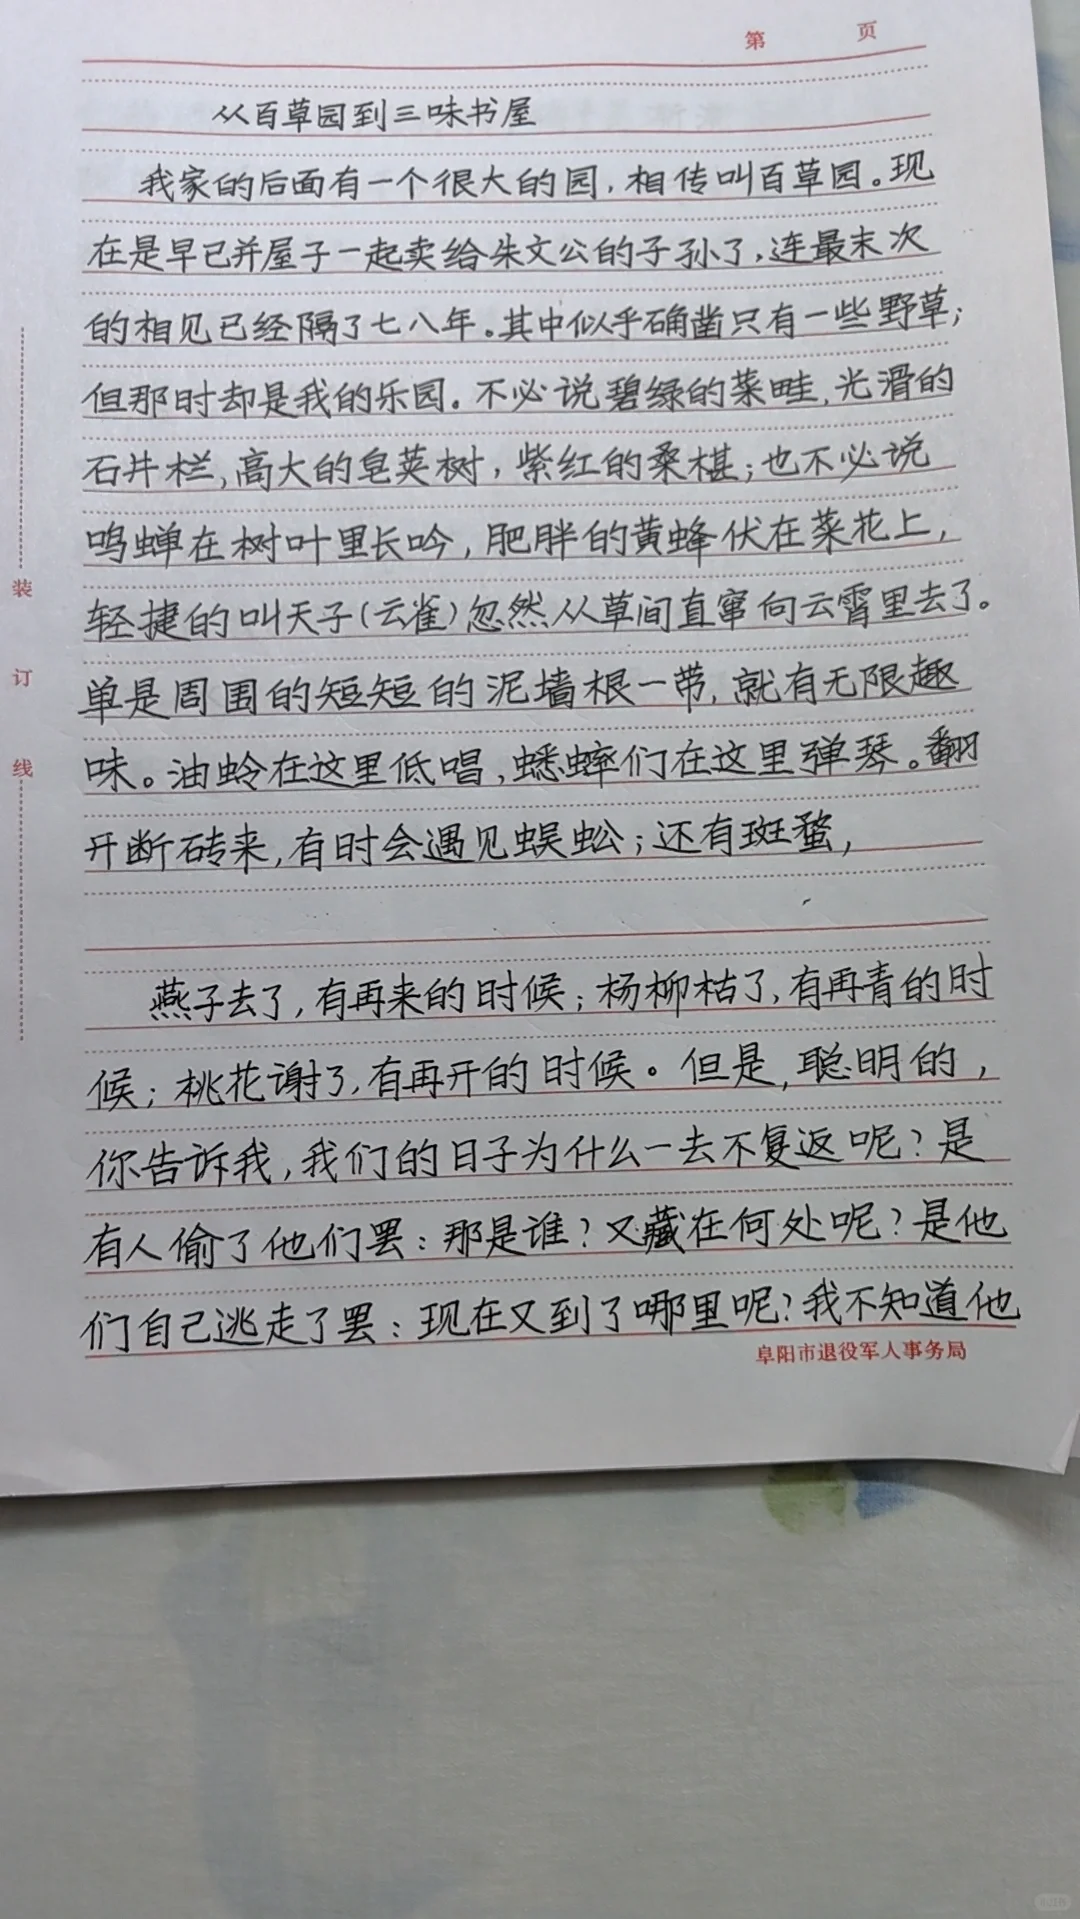 第 页
从百草园到三味书屋
我家的后面有一个很大的园,相传叫百草园。现
在是早已并屋子一起卖给朱文公的子孙了,连最末次
的相见已经隔了七八年。其中似乎确凿只有一些野草;
但那时却是我的乐园。不必说碧绿的菜畦,光滑的
石井栏,高大的皂荚树,紫红的桑椹;也不必说
鸣蝉在树叶里长吟,肥胖的黄蜂伏在菜花上,
轻捷的叫天子(云雀)忽然从草间直窜向云霄里去了。
单是周围的短短的泥墙根一带,就有无限趣
味。油蛉在这里低唱,蟋蟀们在这里弹琴。翻
开断砖来,有时会遇见蜈蚣;还有斑蝥,
燕子去了,有再来的时候;杨柳枯了,有再青的时
候;桃花谢了,有再开的时候。但是,聪明的,
你告诉我,我们的日子为什么一去不复返呢?是
有人偷了他们罢:那是谁?又藏在何处呢?是他
们自己逃走了罢:现在又到了哪里呢?我不知道他
阜阳市退役军人事务局
装
订
线
小红书